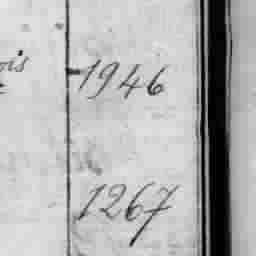 ois
1946
1267